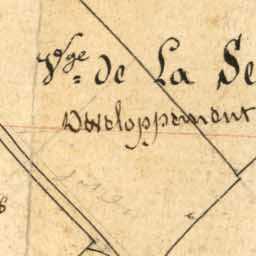 Vge de La Se
Developpement